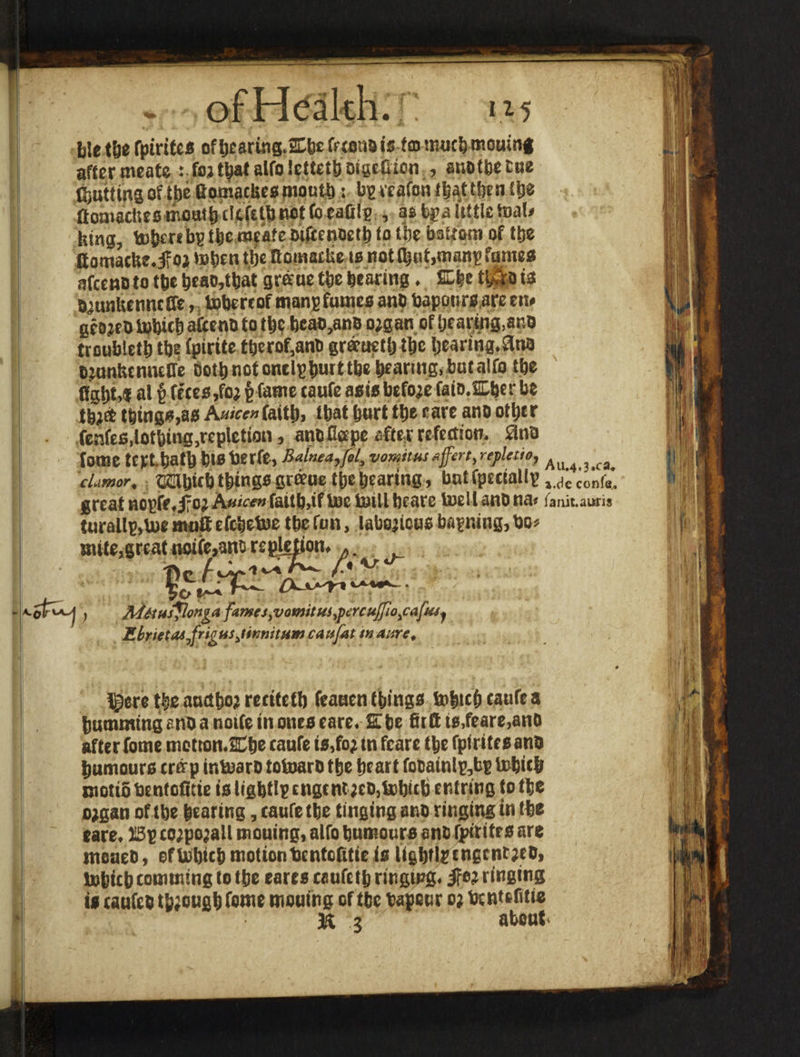 of Health. 125
ble the spirites of hearing. The second is too much mouing
after meate : for that also letteth digestion , and the due
shutting of the stomackes mouth : by reason that then the
stomackes mouth closeth not so easilp , as by a little wal-
king, where by the meate discendeth to the bottom of the
stomacke. For when the stomacke is not shut, many fumes
ascend to the head, that græue the hearing . The third is
drunkennesse , whereof many fumes and vapours are en-
gendred which ascend to the head, and organ of hearing, and
troubleth the spirite therof, and græueth the hearing. And
drunkennesse doth not onely hurt the hearing, but also the
sight, & al þ sēces, for þ same cause as is before said. Ther be
thræ things, as Auicen saith, that hurt the eare and other
senses, lothing, repletion , and slæpe after refection. And
some text hath his verse, Balnea, sol, vomitus affert, repletio, Au.4.3.ca.
clamor. Which things græue the hearing , but specially 2.de conse.
great noyse. For Auicen saith, if we will heare well and na- sanit.auris
turally, we must eschewe the sun, laborious bayning, vo-
mite, great noise, and repletion.
Metus, longa fames, vomitus, percussio, casus,
Ebrietas, frigus, tinnitum causat in aure.
Here the aucthor reciteth seauen things which cause a
humming and a noise in ones eare. The first is, feare, and
after some motion. The cause is, for in feare the spirites and
humours cræp inward toward the heart sodainly, by which
motiō ventositie is lightly engendred, which entring to the
organ of the hearing , cause the tinging and ringing in the
eare. By corporall mouing, also humours and spirites are
moued , of which motion ventositie is lightly engendred,
which comming to the eares causeth ringing. For ringing
is caused through some mouing of the vapour or ventositie
K 3 about